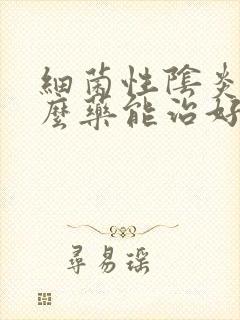 細菌性陰炎
麼藥能治好
尋易瑤